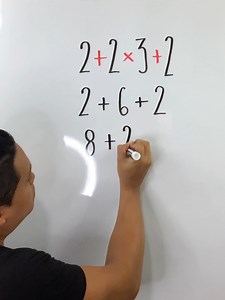 2+2×3+2
2+6+2
8+2